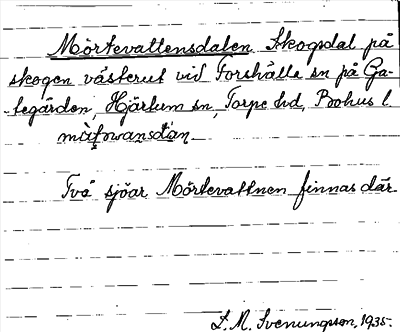 Mörtevattensdalen Skogsdal på
skogen västerut vid Forshälla sn på Ga-
tegården, Hjärtum sn, Torpe hd, Bohus l.
Två sjöar Mörtevattnen finnas där
L. M. Svenungsson, 1935.